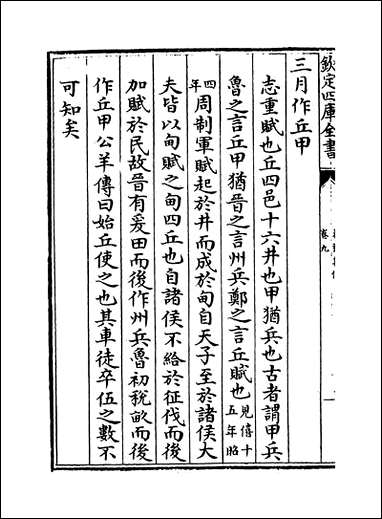 欽定四庫全書
卷九
三月作丘甲
志重賦也丘四邑十六井也甲猶兵也古者謂甲兵
魯之言丘甲猶晉之言州兵鄭之言丘賦也見僖十五年昭
四年周制軍賦起於井而成於甸自天子至於諸侯大
夫皆以甸賦之甸四丘也自諸侯不給於征伐而後
加賦於民故晉有爰田而後作州兵魯初稅畝而後
作丘甲公羊傳曰始丘使之也其車徒卒伍之數不
可知矣